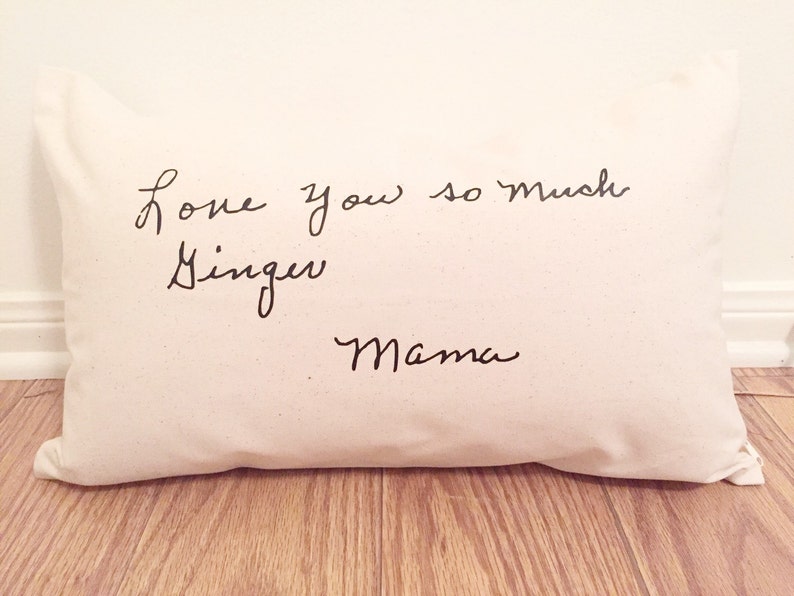 Love you so much
Ginger
Mama